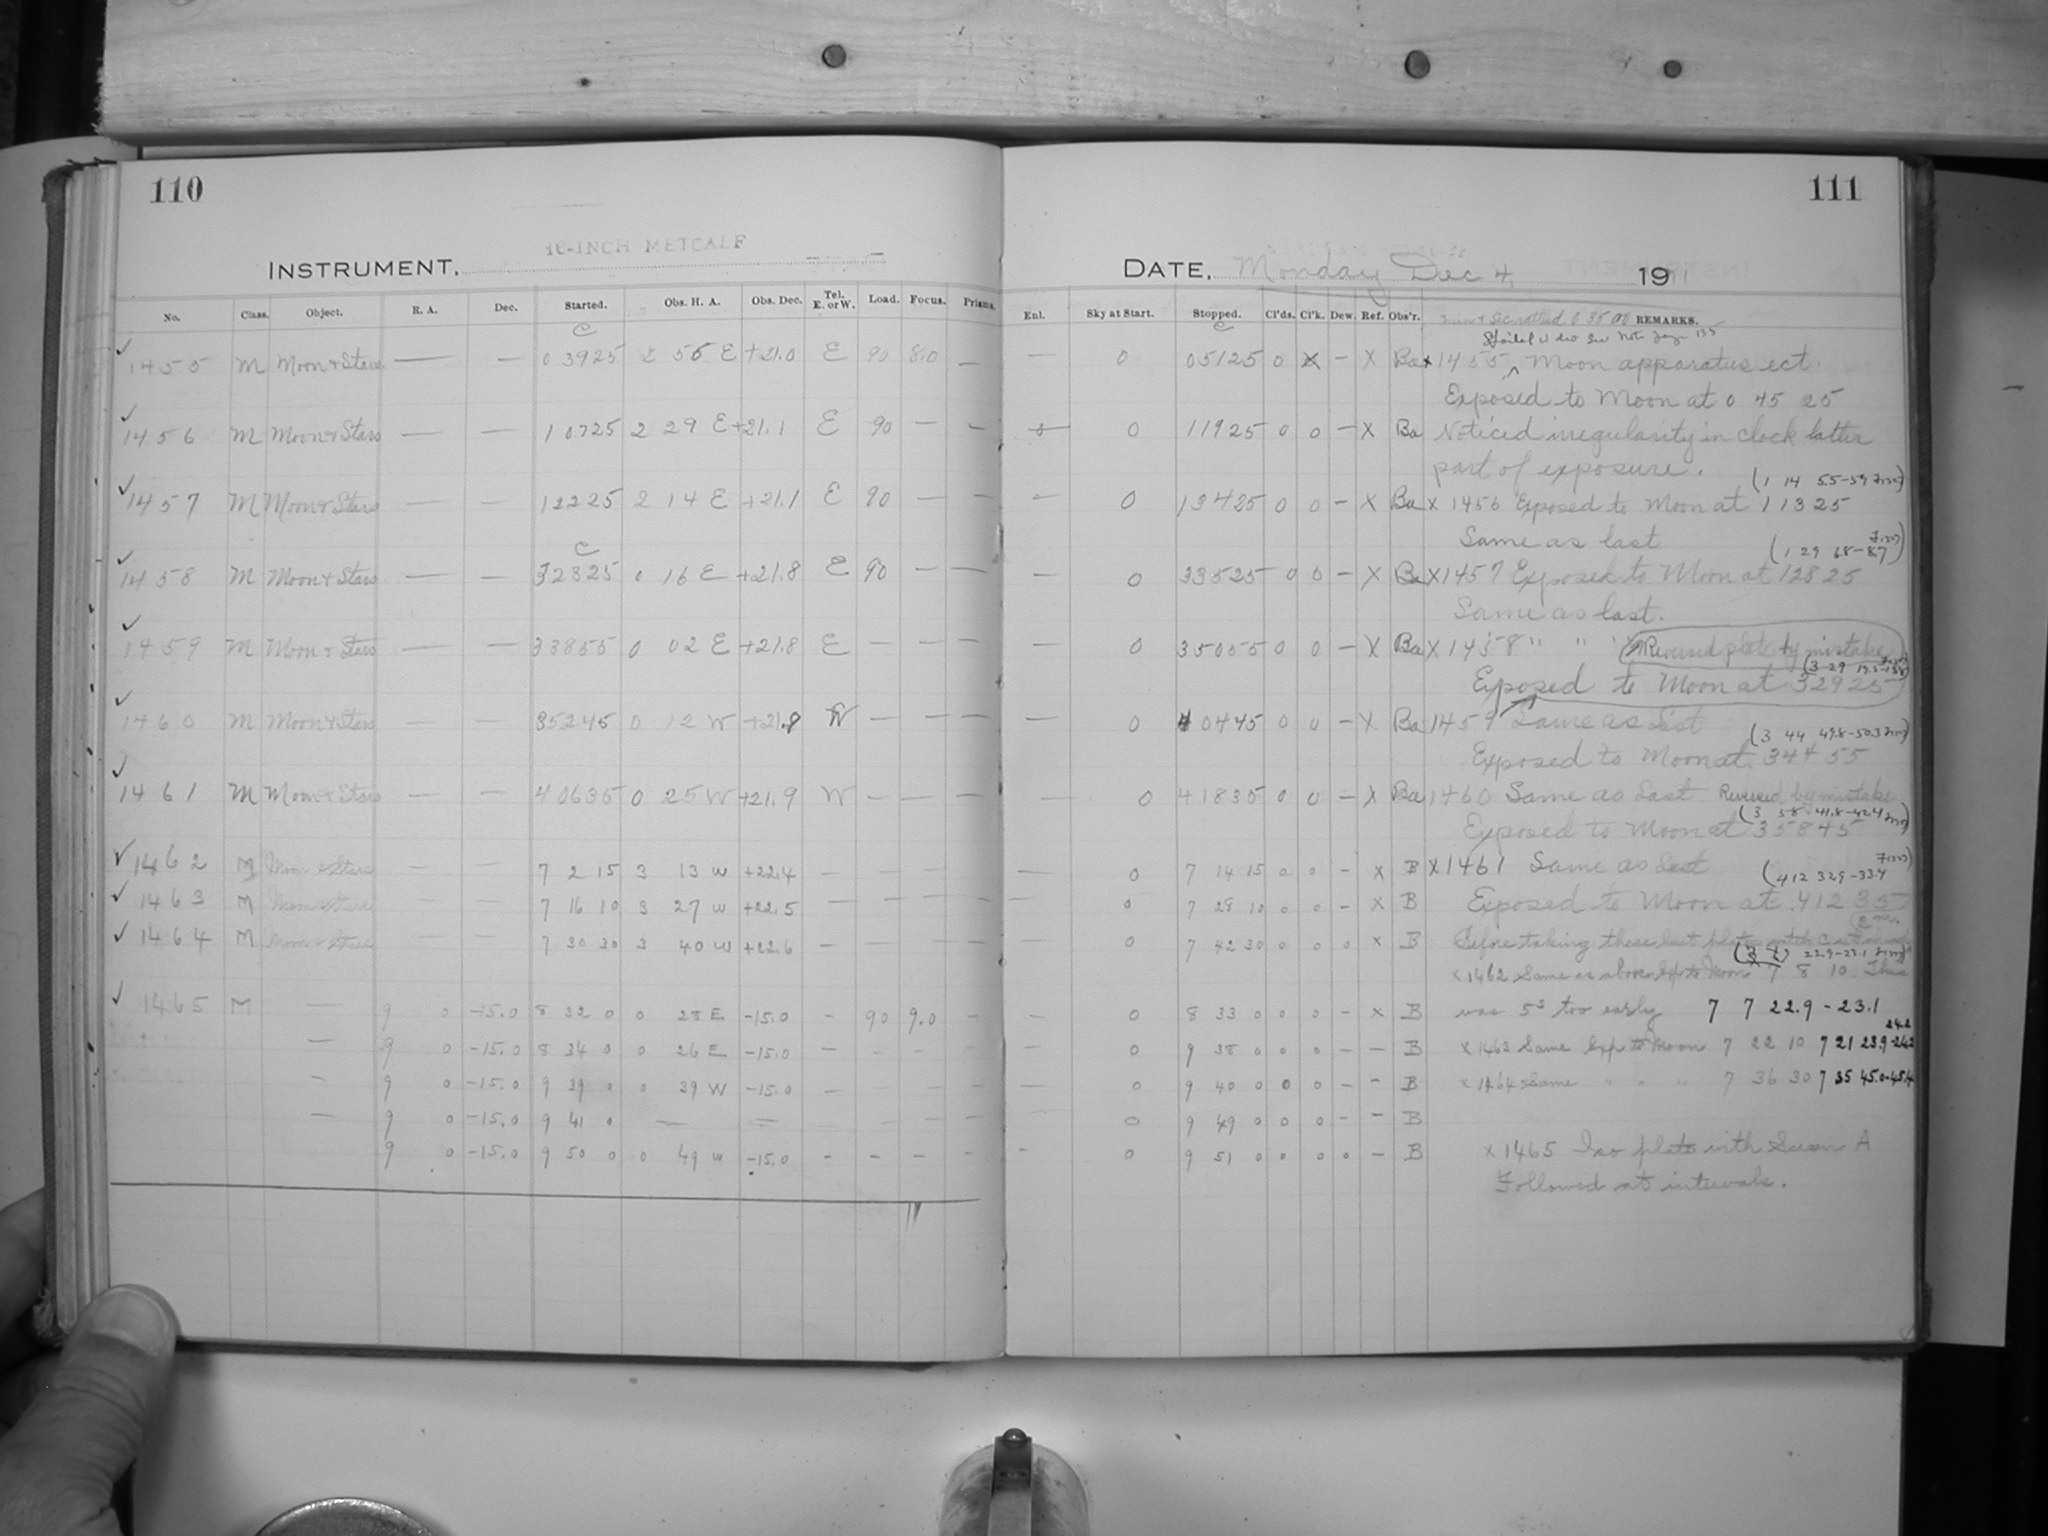 110
INSTRUMENT. 16-INCH METCALF
No. Class. Object. R. A. Dec. Started. Obs. H. A. Obs. Dec. Tel. E. or W. Load. Focus. Prisms.
C
✓ 1455 M Moon & Stars — — 0 39 25 2 55 E +21.0 E 90 8.0 —
✓ 1456 M Moon & Stars — — 1 07 25 2 29 E +21.1 E 90 — —
✓ 1457 M Moon & Stars — — 1 22 25 2 14 E +21.1 E 90 — —
C
✓ 1458 M Moon & Stars — — 3 23 25 0 16 E +21.8 E 90 — —
✓ 1459 M Moon & Stars — — 3 38 55 0 02 E +21.8 E — — —
✓ 1460 M Moon & Stars — — 3 52 45 0 12 W +21.8 W — — —
✓ 1461 M Moon & Stars — — 4 06 35 0 25 W +21.9 W — — —
✓ 1462 M Moon & Stars — — 7 2 15 3 13 W +22.4 — — — —
✓ 1463 M Moon & Stars — — 7 16 10 3 27 W +22.5 — — — —
✓ 1464 M Moon & Stars — — 7 30 30 3 40 W +22.6 — — — —
✓ 1465 M — 9 0 -15.0 8 32 0 0 28 E -15.0 — 90 9.0 —
— 9 0 -15.0 8 34 0 0 26 E -15.0 — - - -
— 9 0 -15.0 9 39 0 0 39 W -15.0 — — — —
— 9 0 -15.0 9 41 0 — — — — —
9 0 -15.0 9 50 0 0 49 W -15.0 - - - -
111
DATE. Monday Dec 4, 1911
Enl. Sky at Start. Stopped. Cl'ds. Cl'k. Dew. Ref. Obs'r. REMARKS.
C
— 0 0 51 25 0 X — X Ba x 1455 Moon apparatus ect.
Exposed to Moon at 0 45 25
0 0 1 19 25 0 0 — X Ba Noticed irregularity in clock latter
part of exposure.
(1 14 55-59
— 0 1 34 25 0 0 — X Ba x 1456 Exposed to Moon at 1 13 25
Same as last
— 0 3 35 25 0 0 — X Ba X 1457 Exposed to Moon at 1 28 25
Same as last.
— 0 3 50 55 0 0 — X Ba X 1458 " " " Reversed plate by mistake
Exposed to Moon at 3 29 25
— 0 4 04 45 0 0 — X Ba 1459 Same as last
(3 44 49.8-50.3
Exposed to Moon at 3 44 55
— 0 4 18 35 0 0 — X Ba 1460 Same as Last Reversed by mistake
(3 58 41.8-42.4
Exposed to Moon at 3 58 45
— 0 7 14 15 0 0 - x B X 1461 Same as Last
(4 12 32.9-33.4
— 0 7 28 10 0 0 - X B Exposed to Moon at 4 12 35
— 0 7 42 30 0 0 0 x B Before taking these last plates
22.9-23.1
x 1462 Same as above Exp to Moon 7 8 10 This
— 0 8 33 0 0 0 - x B was 5s too early 7 7 22.9 - 23.1
— 0 9 38 0 0 0 — — B x 1463 Same Exp to Moon 7 22 10 7 21 23.9-24.2
24.2
— 0 9 40 0 0 0 - - B x 1464 Same " " " 7 36 30 7 35 45.0-45.4
— 0 9 49 0 0 0 - - B
- 0 9 51 0 0 0 0 — B x 1465 Iso plate with Screen A
Followed at intervals.